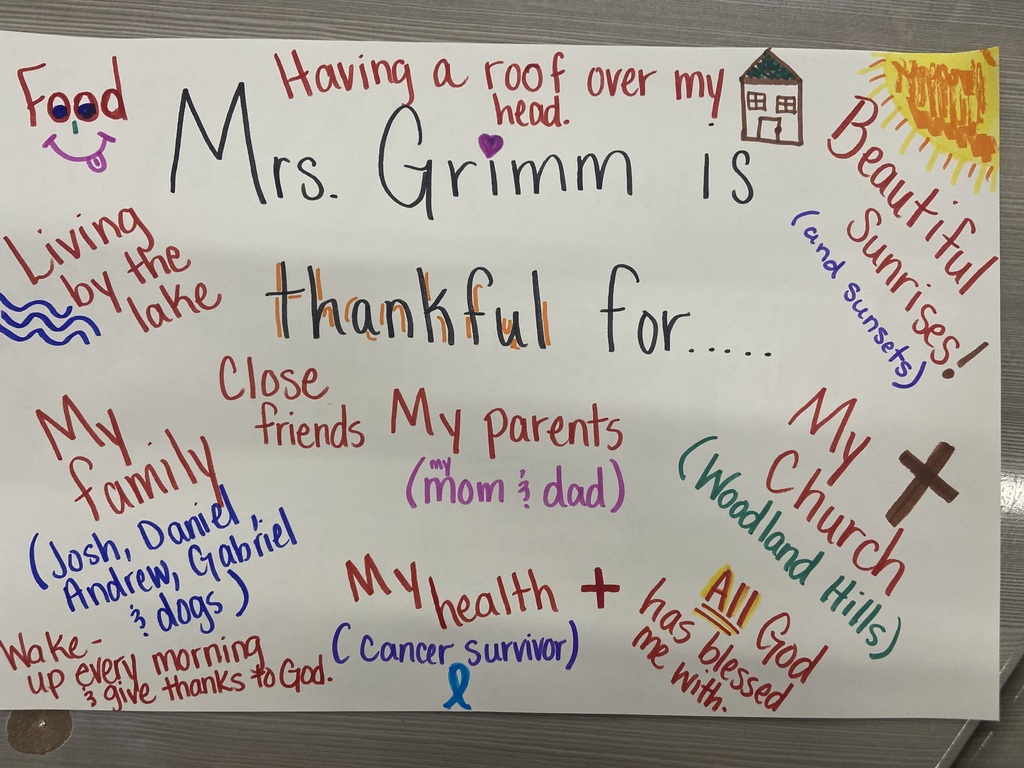 Food
Having a roof over my
head.
Mrs. Grimm is
Beautiful
Sunrises!
(and sunsets)
Living
by the
lake
thankful for.....
Close
friends
My parents
(my mom & dad)
My
Church
(Woodland Hills)
My
family
(Josh, Daniel,
Andrew, Gabriel
& dogs)
My health +
(cancer survivor)
All God
has blessed
me with.
Wake-
up every morning
& give thanks to God.